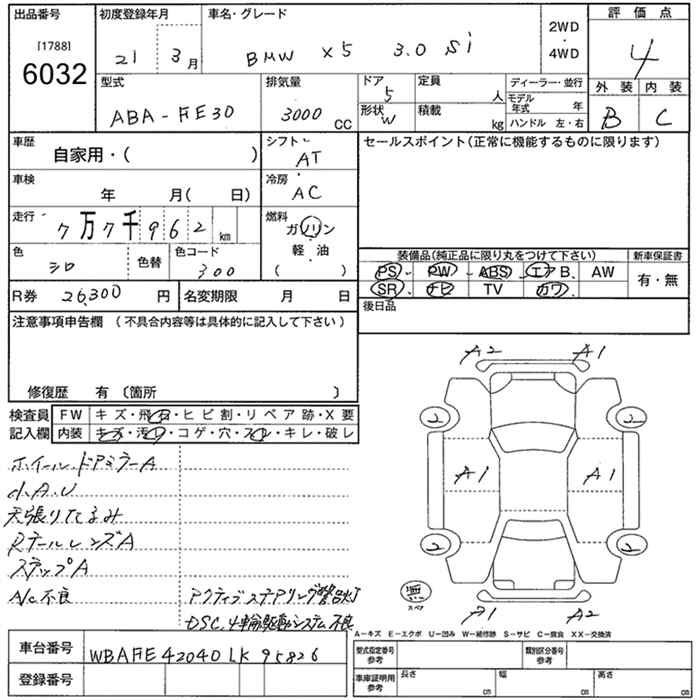 出品番号
[1788]
6032
初度登録年月
21 3月
車名・グレード
BMW X5 3.0 Si
2WD
・
4WD
評価点
4
外装 内装
B C
型式
ABA-FE30
排気量
3000 CC
ドア
5
形状 W
定員
人
積載
kg
ディーラー・並行
モデル年式 年
ハンドル 左・右
車歴
自家用・( )
シフト
AT
車検
年 月( 日)
冷房
AC
走行
7万7千962 km
燃料
ガソリン
軽・油
( )
色
シロ
色替
色コード
300
R券 26300 円
名変期限 月 日
セールスポイント(正常に機能するものに限ります)
装備品(純正品に限り丸をつけて下さい)
新車保証書
PS、PW、ABS、エアB、AW
SR、ナビ TV カワ、
有・無
後日品
注意事項申告欄 (不具合内容等は具体的に記入して下さい)
修復歴 有〔箇所 〕
検査員
記入欄
FW キズ・飛石・ヒビ割・リペア跡・X要
内装 キズ・汚れ・コゲ・穴・スレ・キレ・破レ
ホイール.ドアミラーA
小A.U
天張りたるみ
Rテールレンズ A
ステップA
A/C不良
アクティブステアリング警告灯
DSC、4輪駆動システム不良
A2 A1
2 2
A1 A1
2 2
無
スペア
P1 A2
A－キズ E－エクボ U－凹み W－補修跡 S－サビ C－腐食 XX－交換済
車台番号 WBAFE42040LK95826
登録番号
型式指定番号
参考
類別区分番号
参考
車庫証明用
参考
長さ cm
幅 cm
高さ cm